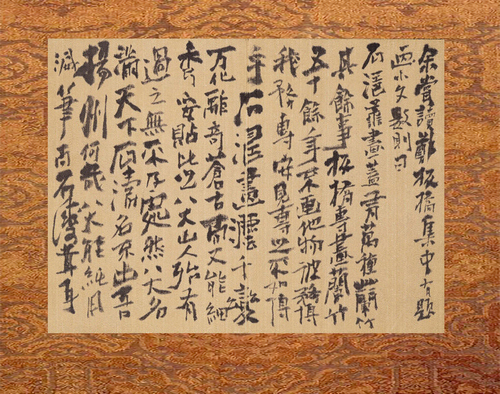 余嘗讀鄭板橋集中有題
畫小文數則曰
石濤善畫蓋有萬種蘭竹
其餘事板橋專畫蘭竹
五十餘年不畫他物彼務博
我務專安見專之不如博
乎石濤畫法千變
万化離奇蒼古而又能細
秀妥貼比之八大山人殆有
過之無不及處然八大名
滿天下石濤名不出吾
揚州何哉八大能純用
減筆而石濤茸耳